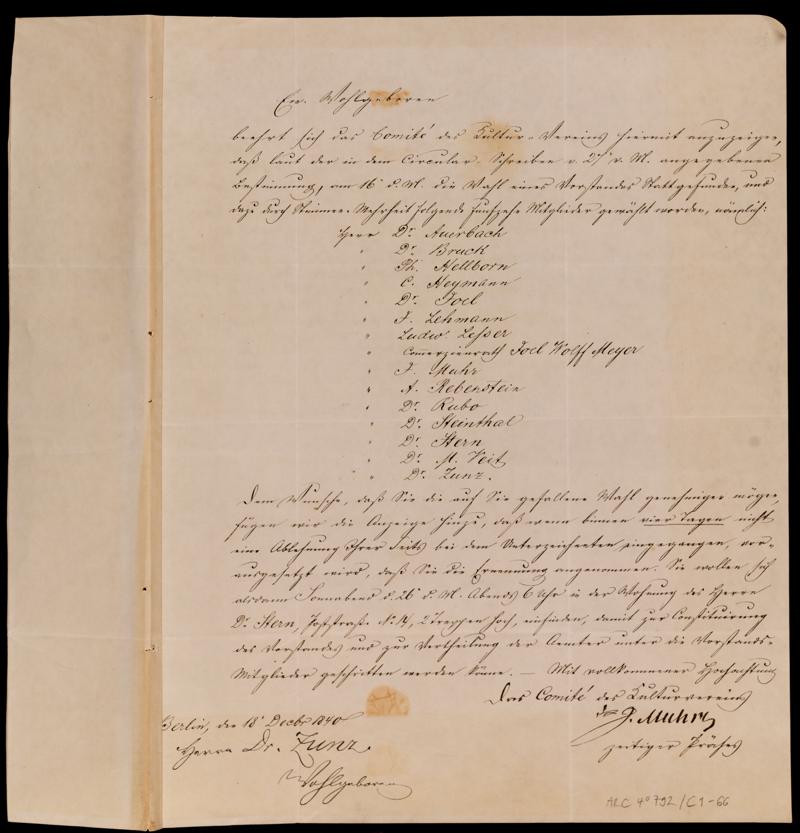 Ew. Wohlgeboren
beehrt sich das Comité des Kultur-Vereins hiermit anzuzeigen,
daß laut der in dem Circular-Schreiben v. 27 v. M. angegebenen
Bestimmung, am 16 d. M. die Wahl eines Vorstandes Stattgefunden, und
dazu durch Stimmen-Mehrheit folgende funfzehn Mitglieder gewählt worden, nämlich:
Herr Dr. Auerbach
" Dr. Bruck
" Ph. Hellborn
" C. Heymann
" Dr. Joel
" J. Lehmann
" Ludw. Lesser
" Commerzienrath Joel Wolff Meyer
" J. Muhr
" A. Rebenstein
" Dr. Rubo
" Dr. Steinthal
" Dr. Stern
" Dr. M. Veit
" Dr. Zunz.
Dem Wunsche, daß Sie die auf Sie gefallene Wahl genehmigen mögen,
fügen wir die Anzeige hinzu, daß wenn binnen vier Tagen nicht
eine Ablehnung Ihrer Seits bei dem Unterzeichneten eingegangen, vor-
ausgesetzt wird, daß Sie die Ernennung angenommen. Sie wollen sich
alsdann Sonnabend d. 26 d. M. Abends 6 Uhr in der Wohnung des Herrn
Dr. Stern, 2 Treppen hoch, einfinden, damit zur Constituirung
des Vorstandes und zur Vertheilung der Aemter unter die Vorstands-
Mitglieder geschritten werden könne. — Mit vollkommener Hochachtung
Das Comité des Kulturvereins
J. Muhr
zeitiger Präses
Berlin, den 18 Decbr 1840
Herrn Dr. Zunz
Wohlgeboren
ARC 4° 792/C1-66